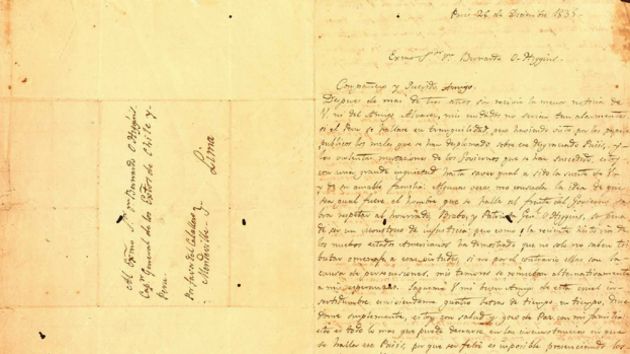 Al Exmo Sr. Dn. Bernardo O-Higgins.
Capn. General de los Estos. de Chile y
Peru.
Por favor del Caballero Dn.
Montevilla
Lima
Paris 26 de Diciembre 1835.
Exmo Sr. Dn. Bernardo O-Higgins.
Compañero y Querido Amigo.
Despues de mas de tres años sin recivir la menor noticia de
V. ni del Amigo Alvarez, mis cuidados no serian tan alarmantes
si el Peru se hallase en tranquilidad, pero haviendo visto por los papeles
publicos los males que se han desplomado sobre ese desgraciado Pais, y
las violentas mutaciones de los Goviernos que se han sucedido, estoy
con una grande inquietud hasta saver qual a sido la suerte de V.
y su amable familia: Algunas veces me consuela la idea de que
sea qual fuere el hombre que se halle al frente del Govierno sa-
bra respetar al honrrado, Brabo, y Patriota Genl. O-Higgins, so pena
de ser un monstruo de injusticia: pero como la reciente historia de
los nuebos estados Americanos ha demostrado que no solo no saben tri-
butar omenaje a esas virtudes, si no por el contrario ellas son la
causa de persecuciones, mis temores se renueban alternativamente
a mis esperanzas. Saqueme V. mi buen Amigo de esta cruel in-
sertidumbre, enviandome quatro letras de tiempo, en tiempo,
donde simplemente, estoy con salud y gozo de Paz con mi familia:
esto es todo lo mas que puede decearse, en las circunstancias en que
se halla ese Pais, por que ser feliz es imposible presenciando los